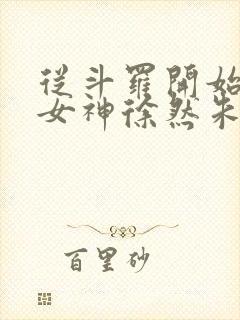 從斗羅開始
女神徐然朱
百里砂